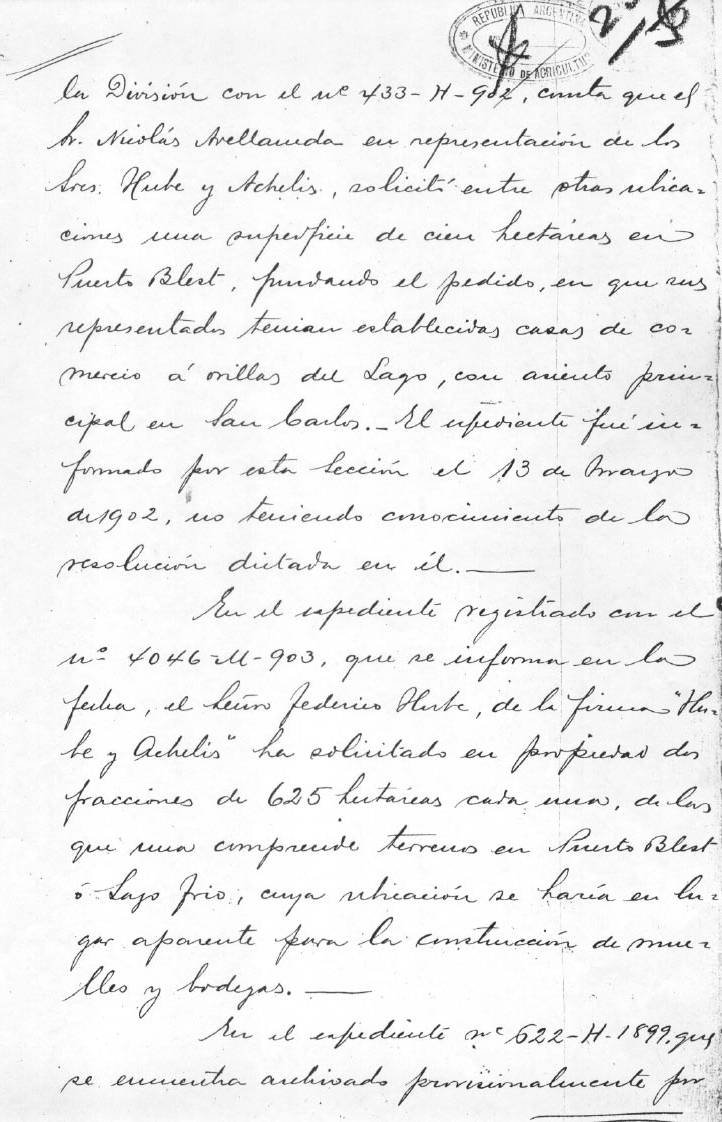 REPÚBLICA ARGENTINA
MINISTERIO DE AGRICULTURA
la División con el nº 433-H-902, consta que el
Sr. Nicolás Avellaneda en representación de los
Sres. Hube y Achelis, solicitó entre otras ubica=
ciones una superficie de cien hectáreas en
Puerto Blest, fundando el pedido, en que sus
representados tenian establecidas casas de co=
mercio á orillas del Lago, con asiento prin=
cipal en San Carlos.- El expediente fué in=
formado por esta Sección el 13 de Marzo
de 1902, no teniendo conocimiento de la
resolución dictada en él.—
En el expediente registrado con el
nº 4046-M-903, que se informa en la
fecha, el Señor Federico Hube, de la firma "Hu=
be y Achelis" ha solicitado en propiedad dos
fracciones de 625 hectáreas cada una, de las
que una comprende terrenos en Puerto Blest
ó Lago Frio, cuya ubicación se haría en lu=
gar aparente para la construcción de mue=
lles y bodegas.—
En el expediente nº 622-H-1899, que
se encuentra archivado provisionalmente por